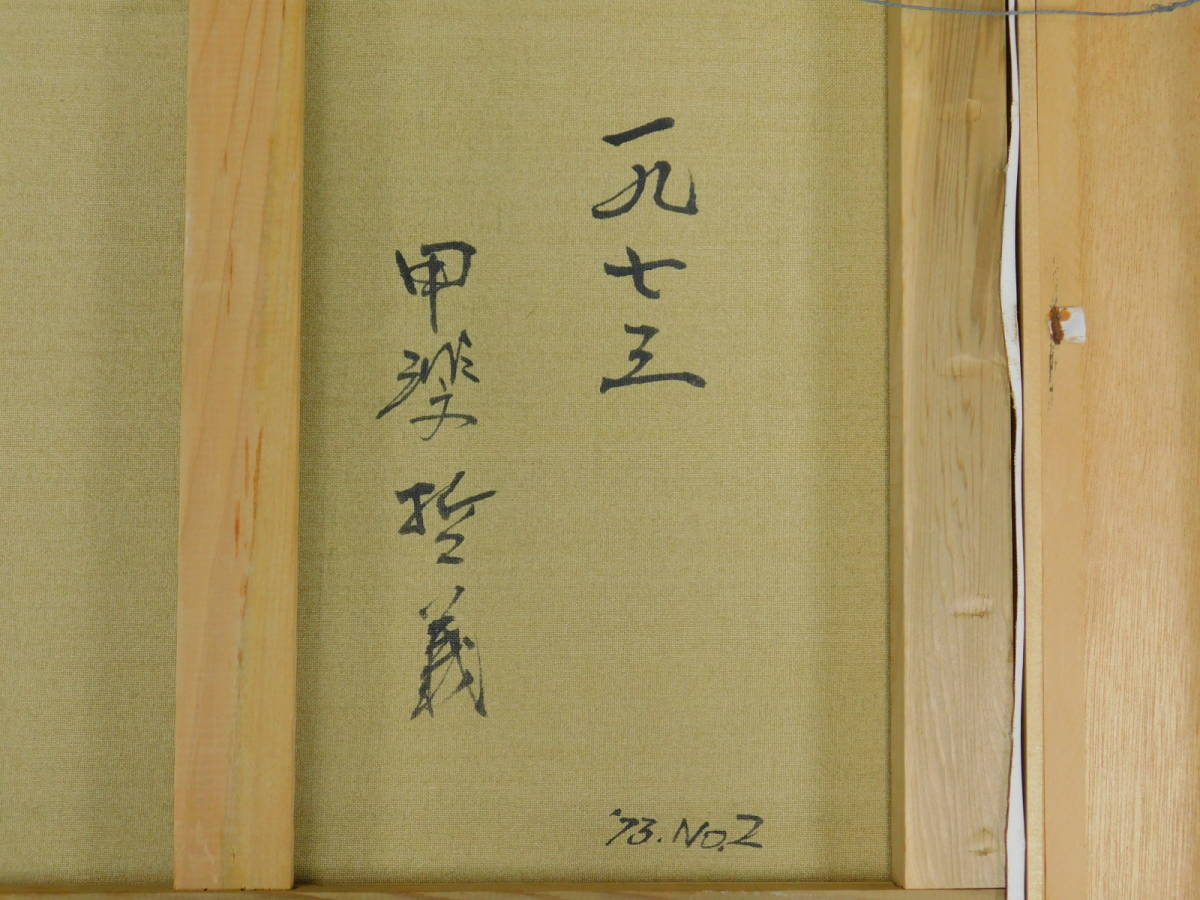 一九七三
甲斐哲義
'73.No.2